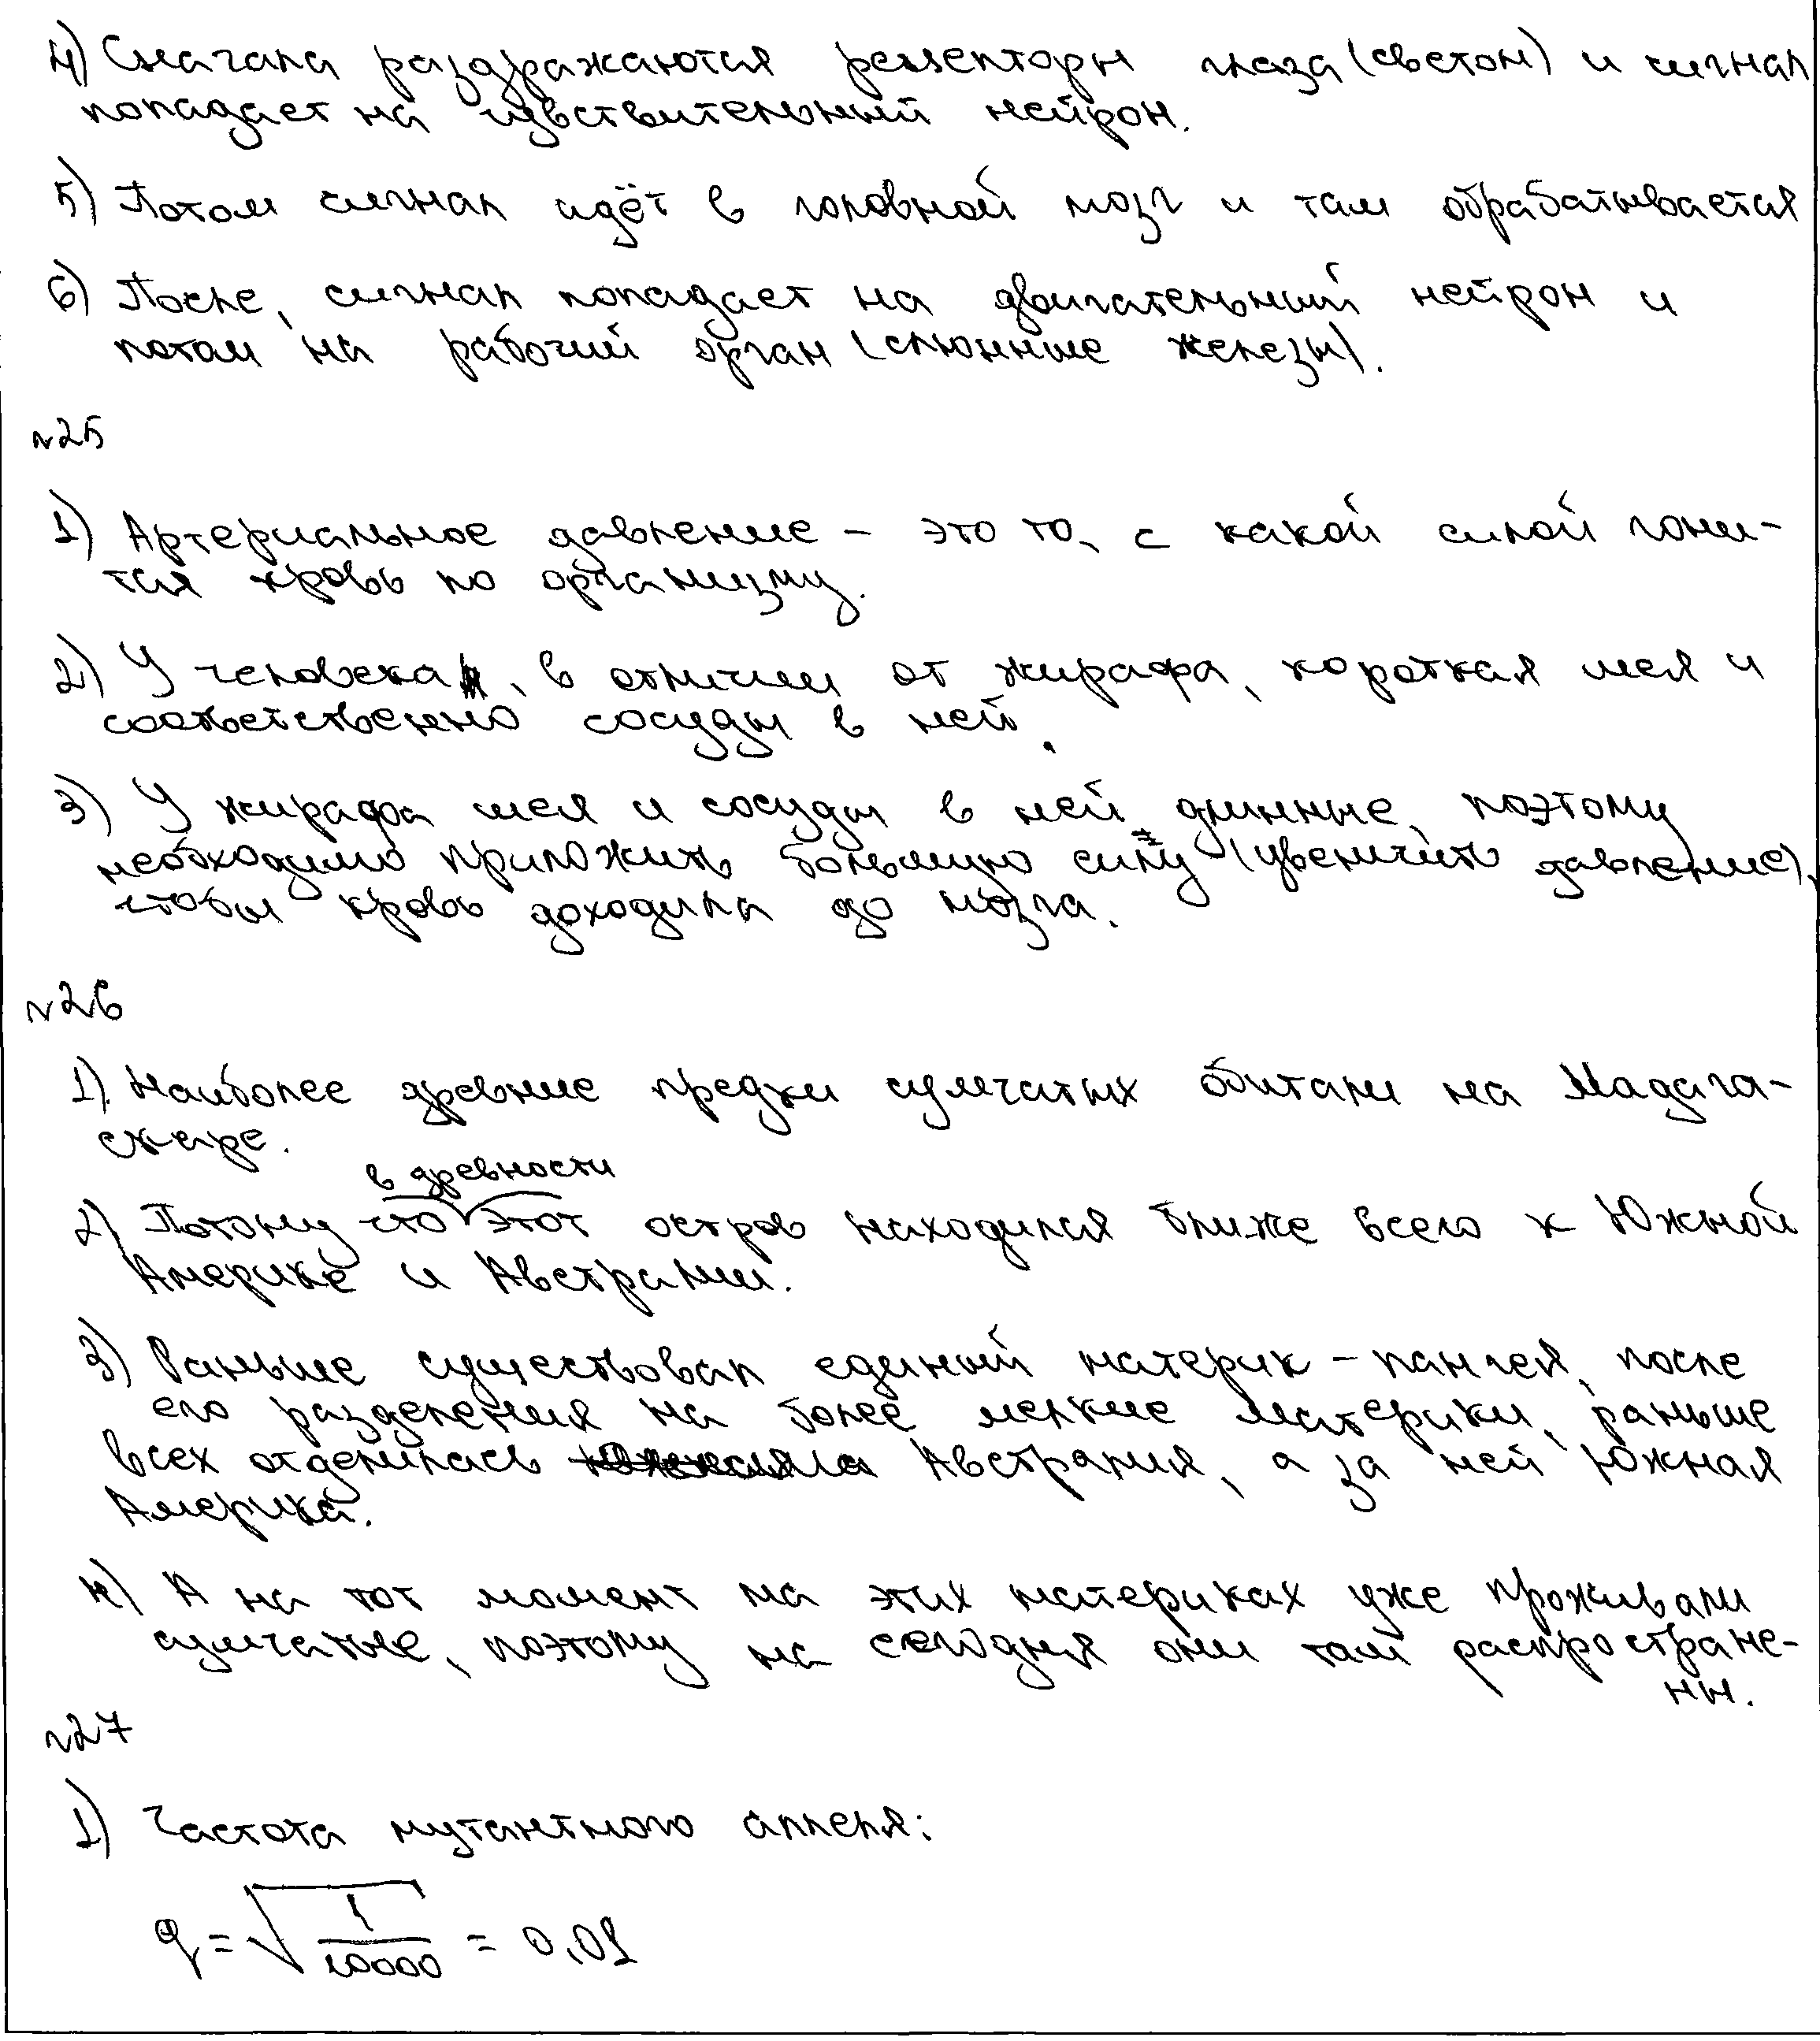 4) Сначала раздражаются рецепторы глаза (светом) и сигнал
попадает на чувствительный нейрон.
5) Потом сигнал идёт в головной мозг и там обрабатывается
6) После, сигнал попадает на двигательный нейрон и
потом на рабочий орган (слюнные железы).
№25
1) Артериальное давление – это то, с какой силой гони-
тся кровь по организму.
2) У человека, в отличии от жирафа, короткая шея и
соответственно сосуды в ней.
3) У жирафа шея и сосуды в ней длинные, поэтому
необходимо приложить большую силу (увеличить давление),
чтобы кровь доходила до мозга.
№26
1) Наиболее древние предки сумчатых обитали на Мадага-
скаре.
в древности
2) Потому что этот остров находился ближе всего к Южной
Америке и Австралии.
3) Раньше существовал единый материк – пангея, после
его разделения на более мелкие материки, раньше
всех отделилась Австралия, а за ней Южная
Америка.
4) А на тот момент на этих материках уже проживали
сумчатые, поэтому на сегодня они там распростране-
ны.
№27
1) Частота мутантного аллеля:
q = √(1/10000) = 0,01